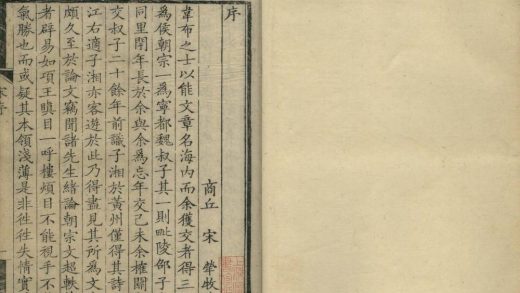 序
商丘 宋 犖牧
韋布之士以能文章名海內而余獲交者得三
為侯朝宗一為寧都魏叔子其一則毗陵邵子
同里閈年長於余與余為忘年交己未余榷關
交叔子二十餘年前識子湘於黃州僅得其詩
江右適子湘亦客遊於此乃得盡見其所為文
頗久至於論文竊聞諸先生緒論朝宗文超軼
者辟易如項王瞋目一呼樓煩目不能視手不
氣勝也而或疑其本領淺薄是非徃徃失情實
宋序